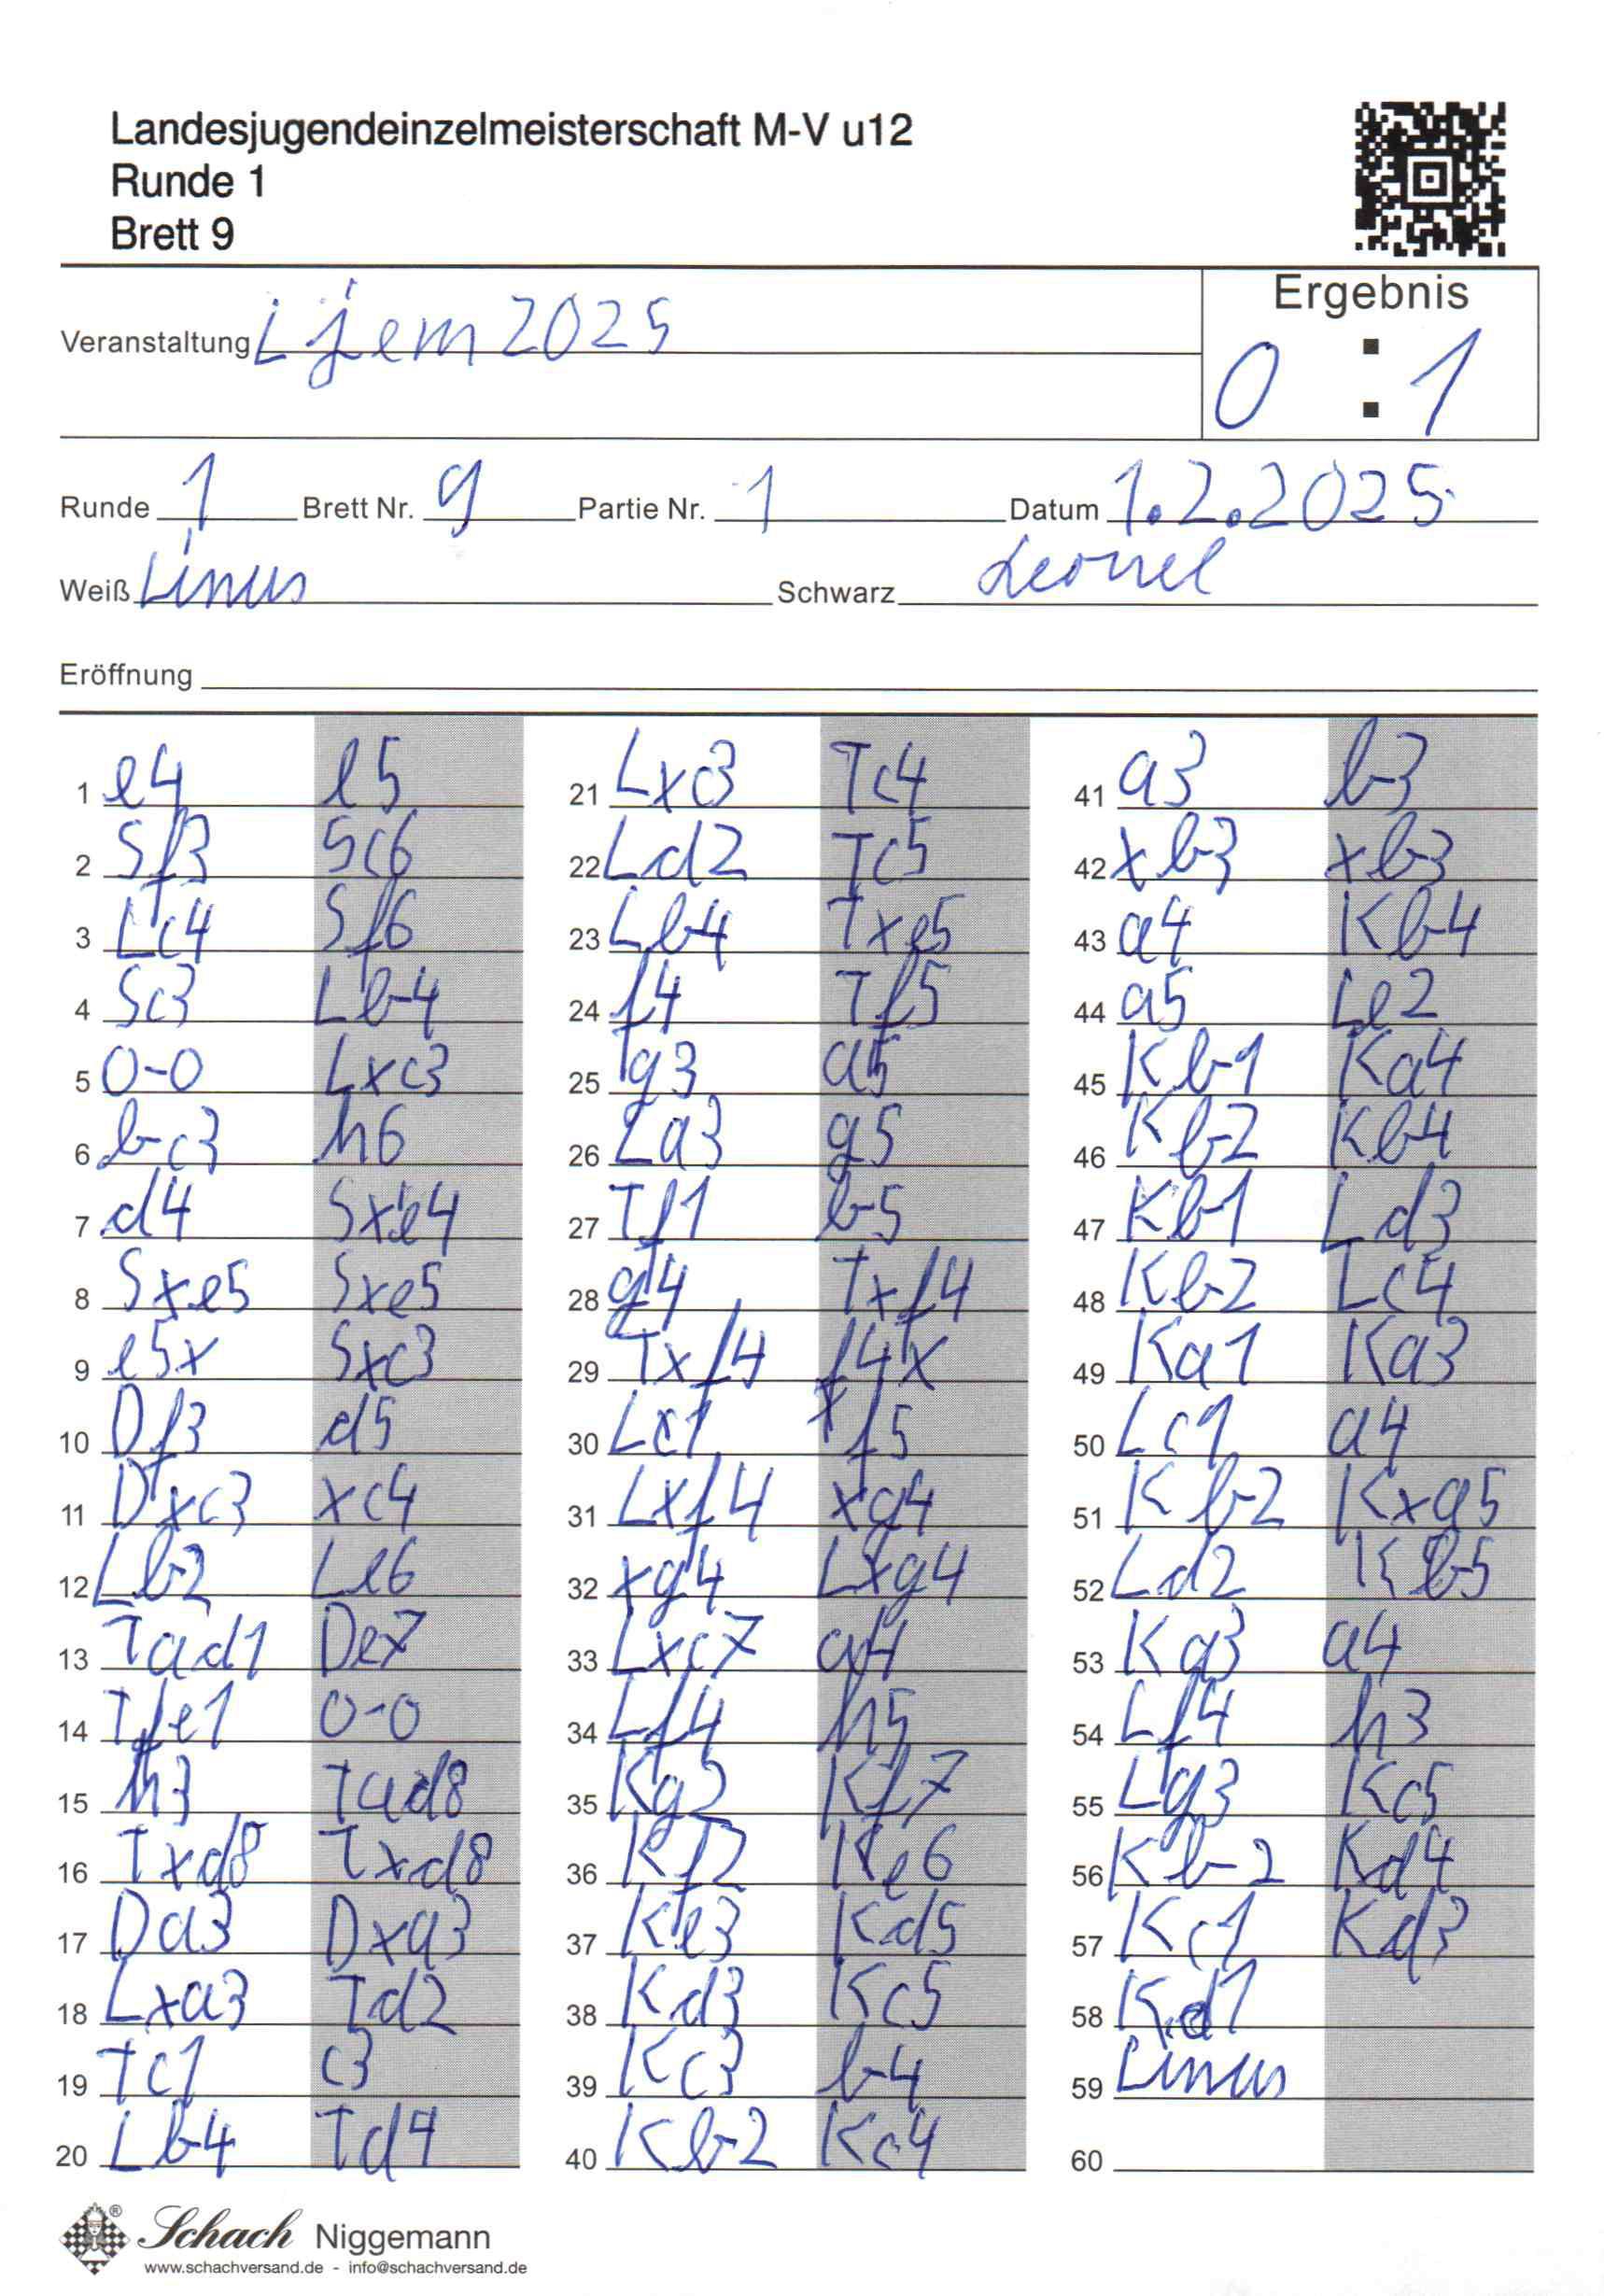 Landesjugendeinzelmeisterschaft M-V u12
Runde 1
Brett 9
Ergebnis
Veranstaltung Ljem 2025
0 : 1
Runde 1 Brett Nr. 9 Partie Nr. 1 Datum 1.2.2025
Weiß Linus Schwarz Leonel
Eröffnung
1 e4 e5
2 Sf3 Sc6
3 Lc4 Sf6
4 Sc3 Lb4
5 0-0 Lxc3
6 bc3 h6
7 d4 Sxe4
8 Sxe5 Sxe5
9 e5x Sxc3
10 Df3 d5
11 Dxc3 xc4
12 Lb2 Le6
13 Tad1 De7
14 Tfe1 0-0
15 h3 Tad8
16 Txd8 Txd8
17 Da3 Dxa3
18 Lxa3 Td2
19 Tc1 c3
20 Lb4 Td4
21 Lxc3 Tc4
22 Ld2 Tc5
23 Lb4 Txe5
24 f4 Tf5
25 g3 a5
26 La3 g5
27 Tf1 b5
28 g4 Txf4
29 Txf4 f4x
30 Lc1 f5
31 Lxf4 xg4
32 xg4 Lxg4
33 Lxc7 a4
34 Lf4 h5
35 Kg2 Kf7
36 Kf2 Ke6
37 Ke3 Kd5
38 Kd3 Kc5
39 Kc3 b4
40 Kb2 Kc4
41 a3 b3
42 xb3 xb3
43 a4 Kb4
44 a5 Le2
45 Kb1 Ka4
46 Kb2 Kb4
47 Kb1 Ld3
48 Kb2 Lc4
49 Ka1 Ka3
50 Lc1 a4
51 Kb2 Kxa5
52 Ld2 Kb5
53 Ka3 a4
54 Lf4 h3
55 Lg3 Kc5
56 Kb2 Kd4
57 Kc1 Kd3
58 Kd1
59 Linus
60
Schach Niggemann
www.schachversand.de - info@schachversand.de